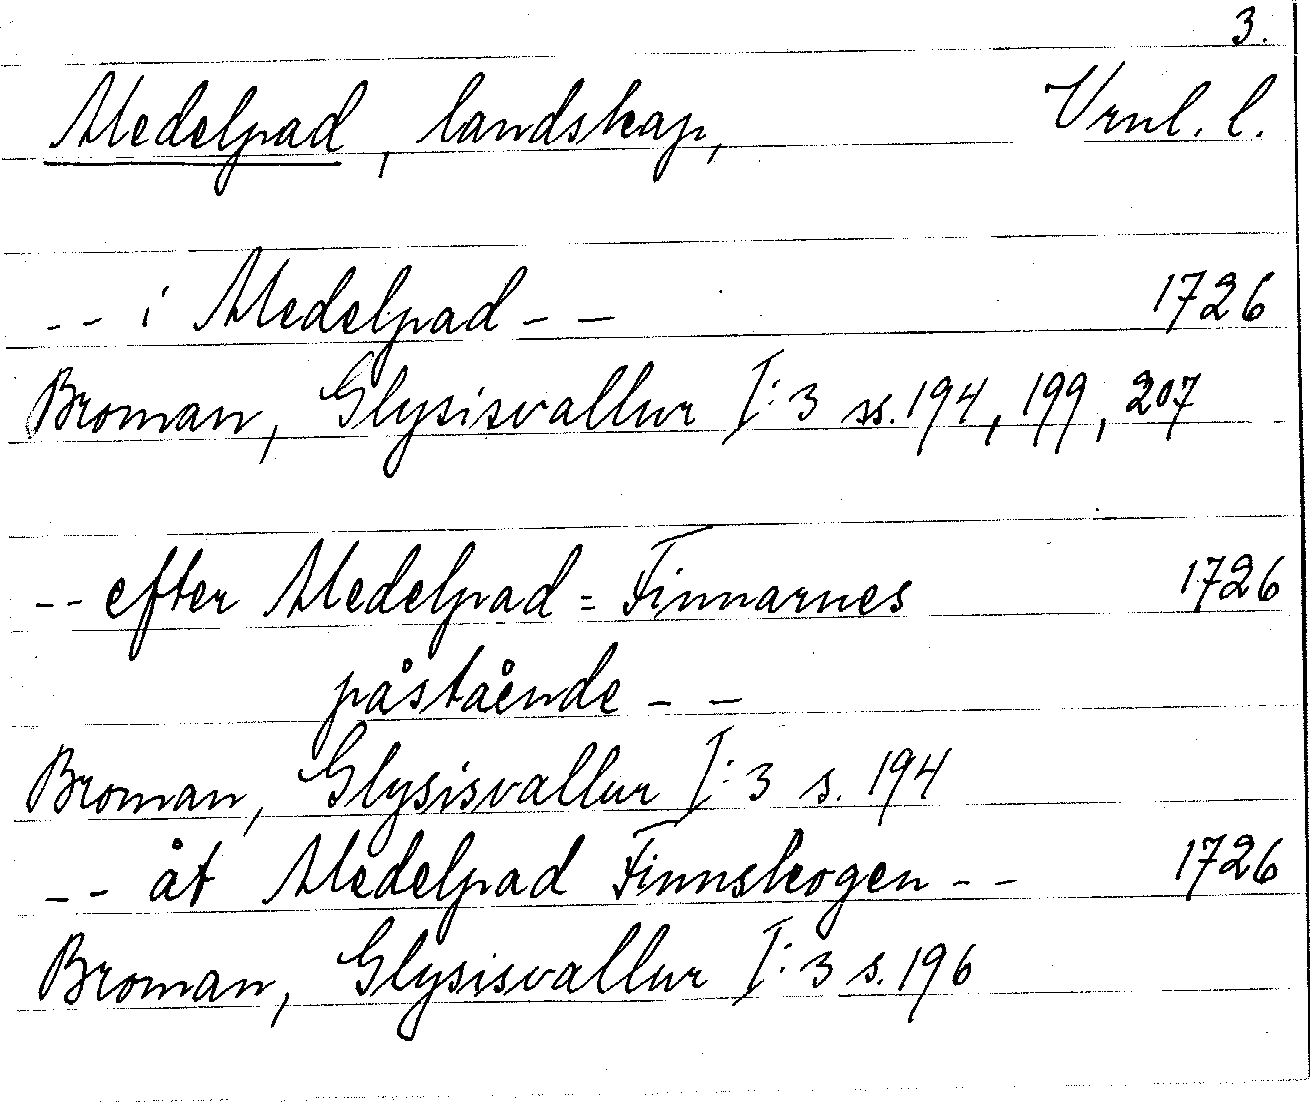 3.
Medelpad, landskap, Vrnl. l.
-- i Medelpad -- 1726
Broman, Glysisvallur I:3 ss. 194, 199, 207
-- efter Medelpad = Finnarnes 1726
påstående --
Broman, Glysisvallur I:3 s. 194
-- åt Medelpad Finnskogen -- 1726
Broman, Glysisvallur I:3 s. 196